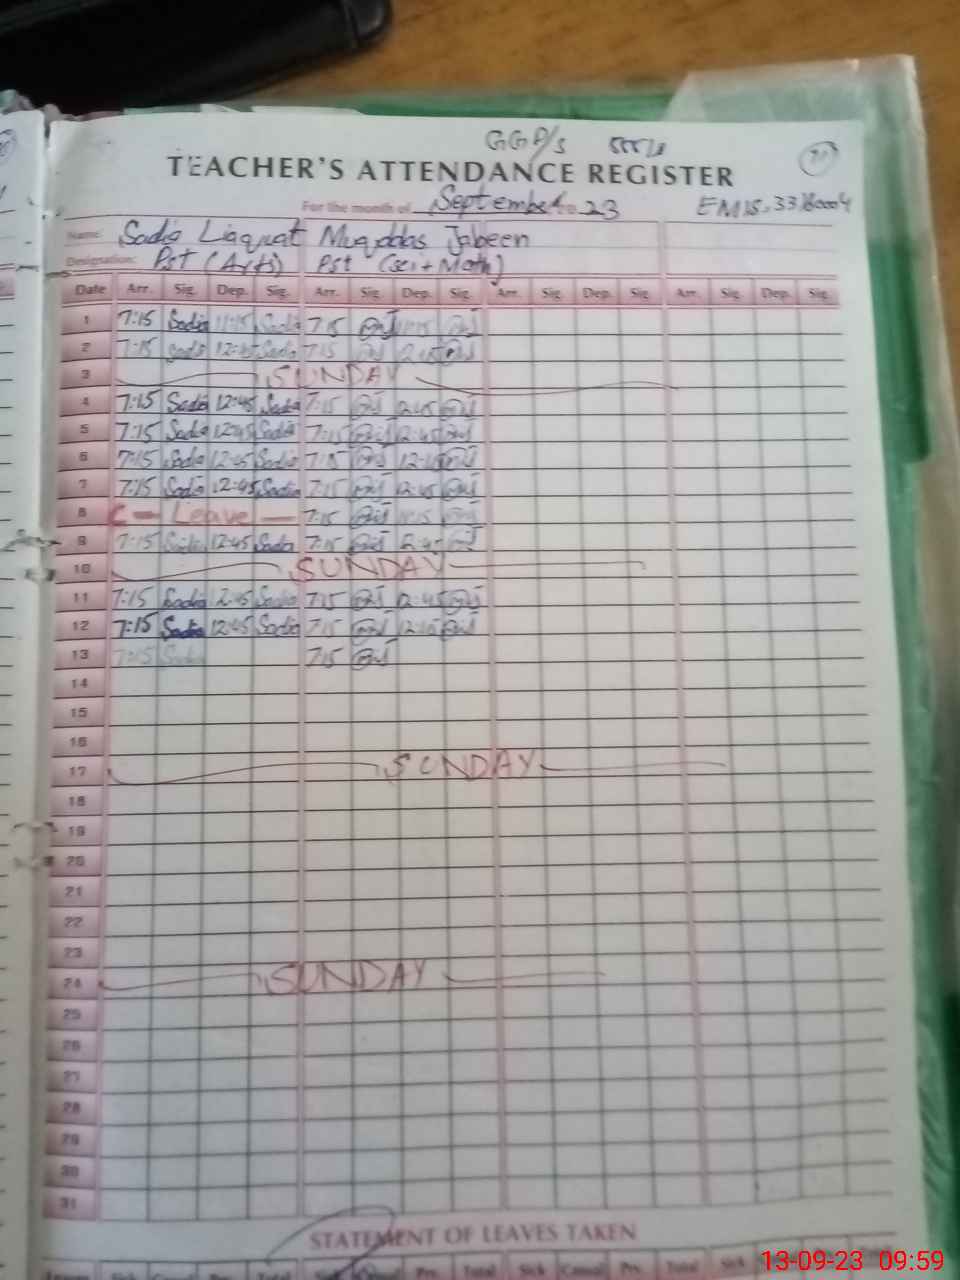 GGP/S
TEACHER'S ATTENDANCE REGISTER
For the month of September 23 EMIS.
Name: Sadia Liaquat Muqddas Jabeen
Designation: Pst (Arts) Pst (Sci + Math)
Date Arr. Sig. Dep. Sig. Arr. Sig. Dep. Sig. Arr. Sig. Dep. Sig. Arr. Sig. Dep. Sig.
1 7:15 Sadia 11:15 Sadia 7:15 11:15
2 7:15 Sadia 12:45 Sadia 7:15
3 SUNDAY
4 7:15 Sadia 12:45 Sadia 7:15 12:45
5 7:15 Sadia 12:45 Sadia 7:15 12:45
6 7:15 Sadia 12:45 Sadia 7:15
7 7:15 Sadia 12:45 Sadia 7:15 12:45
8 C - Leave - 7:15 11:15
9 7:15 Sadia 12:45 Sadia 7:15 12:45
10 SUNDAY
11 7:15 Sadia 12:45 Sadia 7:15 12:45
12 7:15 Sadia 12:45 Sadia 7:15
13 7:15 Sadia 7:15
14
15
16
17 SUNDAY
18
19
20
21
22
23
24 SUNDAY
25
26
27
28
29
30
31
STATEMENT OF LEAVES TAKEN
Sick Casual Prv. Total Sick Casual Prv. Total Sick
13-09-23 09:59